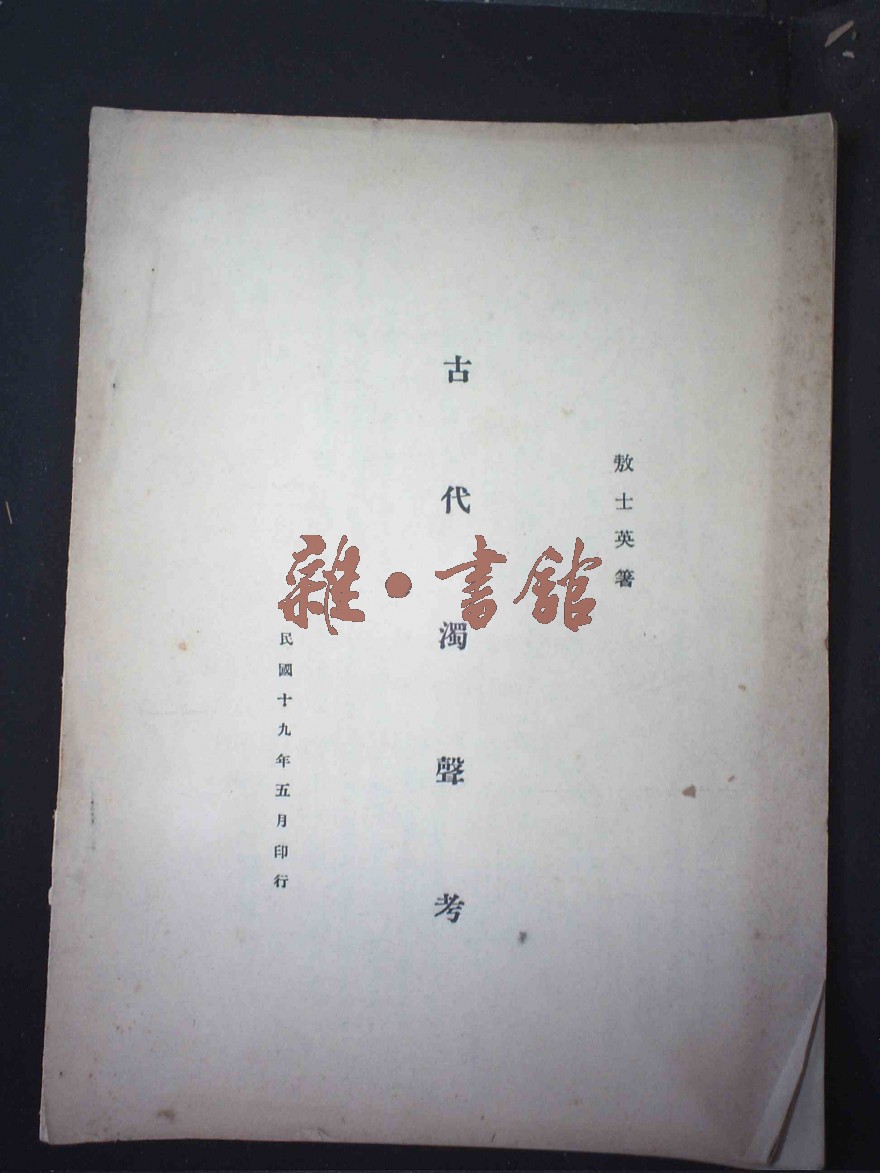 敖士英箸
古代濁聲考
民國十九年五月印行
雜·書館